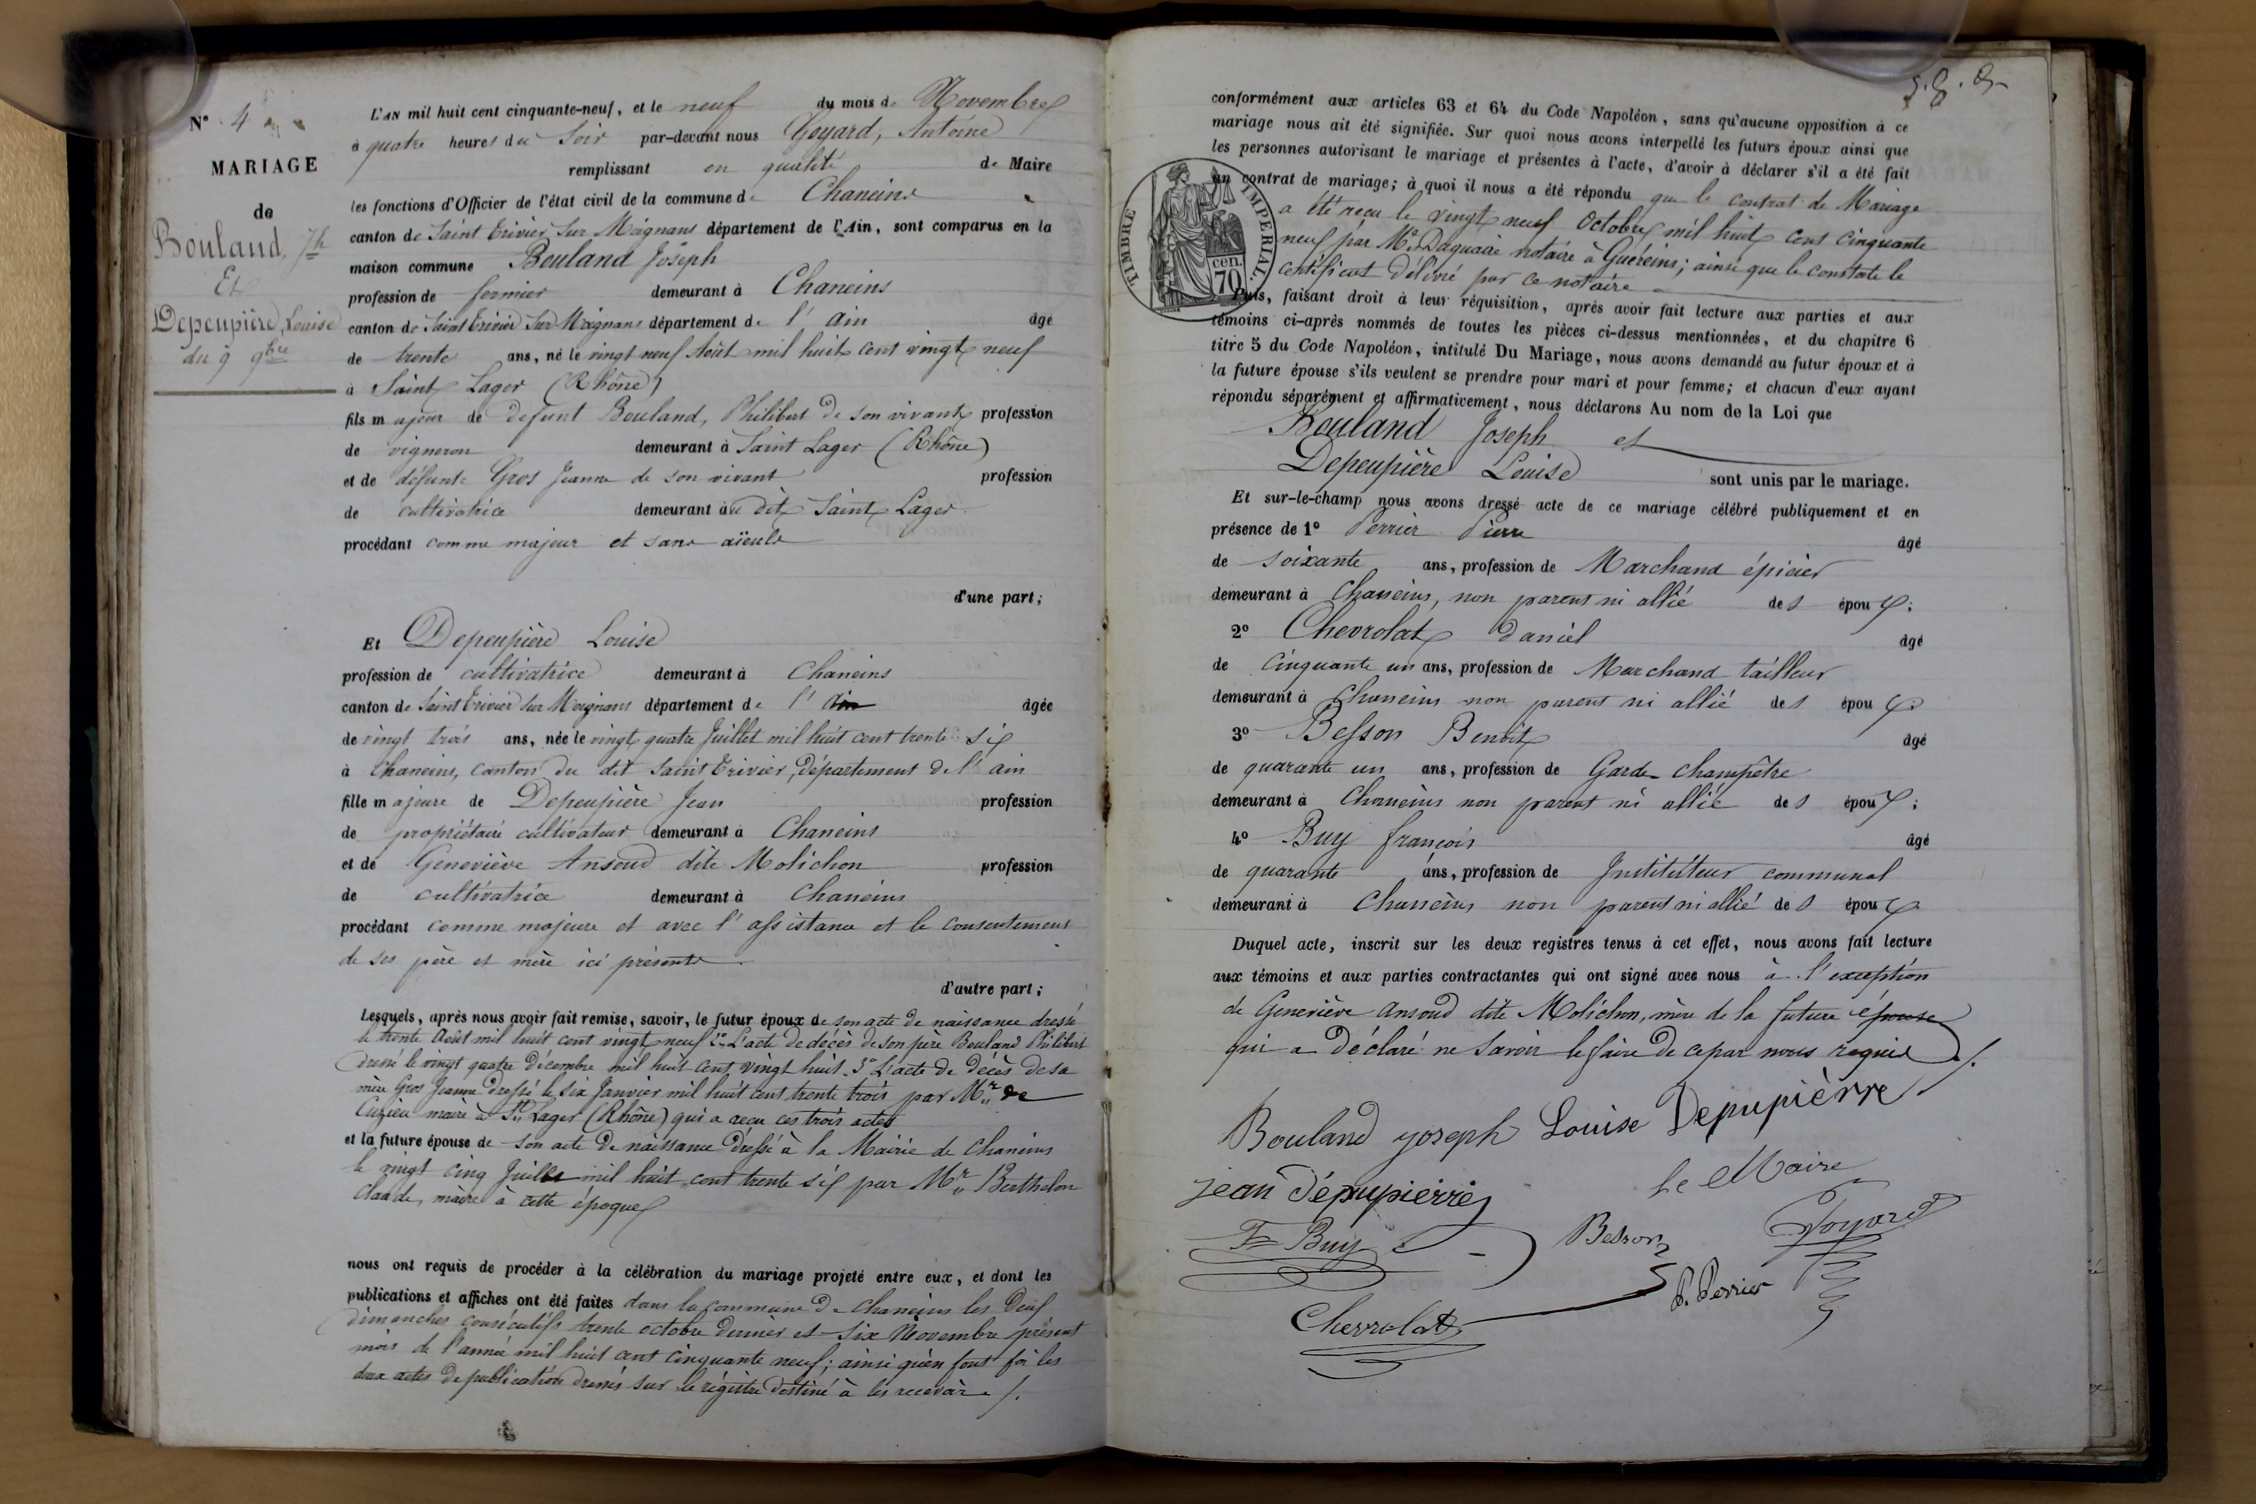 N° 4
MARIAGE
de
Bouland, Jh
Et
Depeupière, Louise
du 9 9bre
L'AN mil huit cent cinquante-neuf, et le neuf du mois de Novembre
à quatre heures du Soir par-devant nous Goyard, Antoine
remplissant en qualité de Maire
les fonctions d'Officier de l'état civil de la commune de Chaneins
canton de Saint Trivier Sur Moignans département de l'Ain, sont comparus en la
maison commune Bouland Joseph
profession de fermier demeurant à Chaneins
canton de Saint Trivier Sur Moignans département de l'ain âgé
de trente ans, né le vingt neuf Août mil huit cent vingt neuf
à Saint Lager (Rhône)
fils majeur de défunt Bouland, Philibert de son vivant profession
de vigneron demeurant à Saint Lager (Rhône)
et de défunte Gros Jeanne de son vivant profession
de cultivatrice demeurant au dit Saint Lager
procédant comme majeur et sans aïeuls
d'une part;
Et Depeupière Louise
profession de cultivatrice demeurant à Chaneins
canton de Saint Trivier Sur Moignans département de l'ain âgée
de vingt trois ans, née le vingt quatre Juillet mil huit cent trente six
à Chaneins, canton du dit Saint Trivier, département de l'ain
fille majeure de Depeupière Jean profession
de propriétaire cultivateur demeurant à Chaneins
et de Geneviève Ansoud dite Molichon profession
de cultivatrice demeurant à Chaneins
procédant comme majeure et avec l'assistance et le consentement
de ses père et mère ici présents
d'autre part;
Lesquels, après nous avoir fait remise, savoir, le futur époux de son acte de naissance dressé
le trente Août mil huit cent vingt neuf 2° L'acte de décès de son père Bouland Philibert
dressé le vingt quatre décembre mil huit cent vingt huit. 3° L'acte de décès de sa
mère Gros Jeanne dressé le six Janvier mil huit cent trente trois par Mr de
Cuzieu maire à St Lager (Rhône) qui a reçu ces trois actes
et la future épouse de son acte de naissance dressé à la Mairie de Chaneins
le vingt cinq Juillet mil huit cent trente six par Mr Berthelon
Claude, maire à cette époque
nous ont requis de procéder à la célébration du mariage projeté entre eux, et dont les
publications et affiches ont été faites dans la commune de Chaneins les deux
dimanches consécutifs trente octobre dernier et six Novembre présent
mois de l'année mil huit cent cinquante neuf; ainsi qu'en font foi les
deux actes de publication dressés sur le régistre destiné à les recevoir ./.
conformément aux articles 63 et 64 du Code Napoléon, sans qu'aucune opposition à ce
mariage nous ait été signifiée. Sur quoi nous avons interpellé les futurs époux ainsi que
les personnes autorisant le mariage et présentes à l'acte, d'avoir à déclarer s'il a été fait
un contrat de mariage; à quoi il nous a été répondu que le contrat de Mariage
a été reçu le vingt neuf Octobre mil huit cent cinquante
neuf par Me Daguaire notaire à Guéreins; ainsi que le constate le
certificat délivré par ce notaire
TIMBRE IMPÉRIAL.
cen.
70
Puis, faisant droit à leur réquisition, après avoir fait lecture aux parties et aux
témoins ci-après nommés de toutes les pièces ci-dessus mentionnées, et du chapitre 6
titre 5 du Code Napoléon, intitulé Du Mariage, nous avons demandé au futur époux et à
la future épouse s'ils veulent se prendre pour mari et pour femme; et chacun d'eux ayant
répondu séparément et affirmativement, nous déclarons Au nom de la Loi que
Bouland Joseph et
Depeupière Louise sont unis par le mariage.
Et sur-le-champ nous avons dressé acte de ce mariage célébré publiquement et en
présence de 1° Perrier Pierre âgé
de soixante ans, profession de Marchand épicier
demeurant à Chaneins, non parent ni allié des époux;
2° Chevrolat Daniel âgé
de cinquante un ans, profession de Marchand tailleur
demeurant à Chaneins non parent ni allié des époux
3° Besson Benoit âgé
de quarante un ans, profession de Garde champêtre
demeurant à Chaneins non parent ni allié des époux;
4° Buy françois âgé
de quarante ans, profession de Instituteur communal
demeurant à Chaneins non parent ni allié des époux
Duquel acte, inscrit sur les deux registres tenus à cet effet, nous avons fait lecture
aux témoins et aux parties contractantes qui ont signé avec nous à l'exception
de Geneviève Ansoud dite Molichon, mère de la future épouse
qui a déclaré ne savoir le faire de ce par nous requis ./.
Bouland joseph Louise Depupièrre
jean Dépupierre Le Maire
F Buy Besson Goyard
Chevrolat P. Perrier